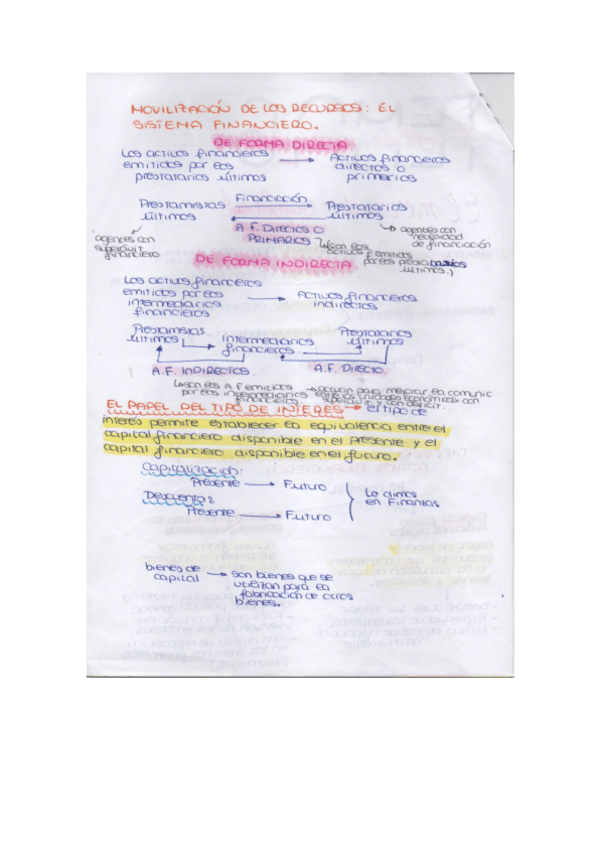 MOVILIZACIÓN DE LOS RECURSOS: EL
SISTEMA FINANCIERO.
DE FORMA DIRECTA
Los activos financieros → Activos financieros
emitidos por los directos o
prestatarios últimos primarios
Prestamistas Financiación Prestatarios
últimos últimos
A.F. DIRECTOS O
PRIMARIOS
agentes con
superávit
financiero
agentes con
necesidad
de financiación
(son los
activos F. emitidos
por los
últimos.)
DE FORMA INDIRECTA
Los activos financieros
emitidos por los → Activos financieros
intermediarios indirectos
financieros
Prestamistas Prestatarios
últimos Intermediarios últimos
financieros
A.F. INDIRECTOS A.F. DIRECTO.
son los A.F. emitidos
por los intermediarios
financieros
actúan para mejorar la comunic
entre las unidades económicas con
superávit y con déficit.
EL PAPEL DEL TIPO DE INTERÉS → el tipo de
interés permite establecer la equivalencia entre el
capital financiero disponible en el presente y el
capital financiero disponible en el futuro.
Capitalización:
Presente → Futuro
Descuento:
Presente → Futuro
Lo dimos
en Finanzas
bienes de
capital → son bienes que se
utilizan para la
fabricación de otros
bienes.